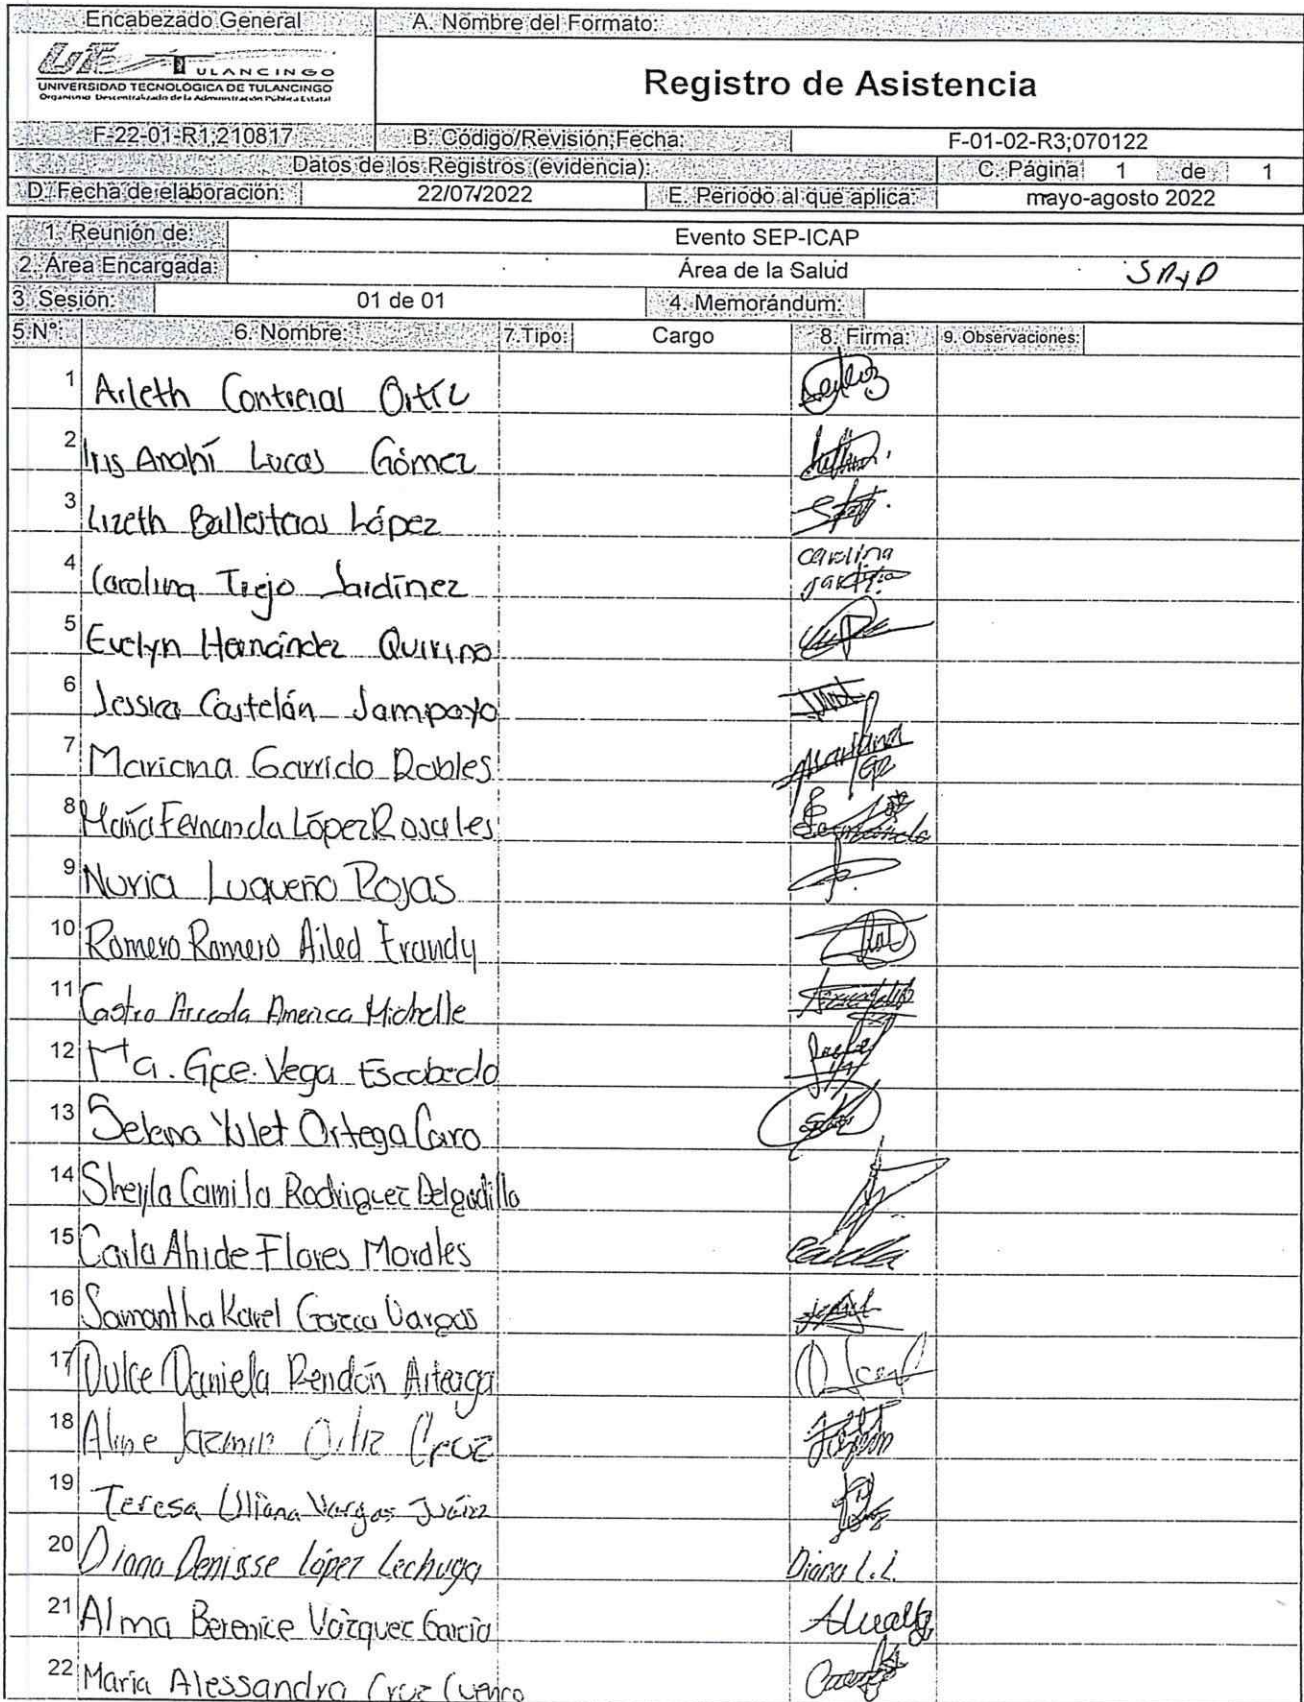 Encabezado General
A. Nombre del Formato:
UT TULANCINGO
UNIVERSIDAD TECNOLÓGICA DE TULANCINGO
Organismo Descentralizado de la Administración Pública Estatal
Registro de Asistencia
F-22-01-R1;210817 B. Código/Revisión;Fecha: F-01-02-R3;070122
Datos de los Registros (evidencia): C. Página 1 de 1
D. Fecha de elaboración: 22/07/2022 E. Periodo al que aplica: mayo-agosto 2022
1. Reunión de: Evento SEP-ICAP
2. Área Encargada: Área de la Salud
3. Sesión: 01 de 01 4. Memorándum:
5.N°: 6. Nombre: 7.Tipo: Cargo 8. Firma: 9. Observaciones:
1 Arleth Contreras Ortíz
2 Iris Anahí Lucas Gómez
3 Lizeth Ballesteros López
4 Carolina Trejo Jardínez carolina
5 Evelyn Hernández Quirino
6 Jessica Castelán Sampayo
7 Mariana Garrido Robles Mariana
8 María Fernanda López Rosales
9 Nuria Luqueño Rojas
10 Romero Romero Ailed Erandy
11 Castro Arreola America Michelle
12 Ma. Gpe. Vega Escobedo
13 Selena Yulet Ortega Caro
14 Sheyla Camila Rodriguez Delgadillo
15 Carla Ahide Flores Morales
16 Samantha Karel Garcia Vargas
17 Dulce Daniela Rendón Arteaga
18 Aline Jazmin Ortiz Cruz
19 Teresa Liliana Vargas Juárez
20 Diana Denisse López Lechuga Diana L.L.
21 Alma Berenice Vázquez García
22 Maria Alessandra Cruz Cuenco